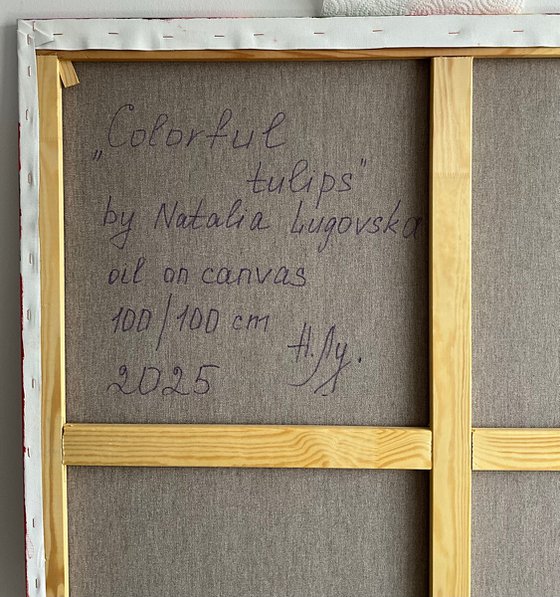 „Colorful
tulips"
by Natalia Lugovska
oil on canvas
100/100 cm
Н.Лу.
2025